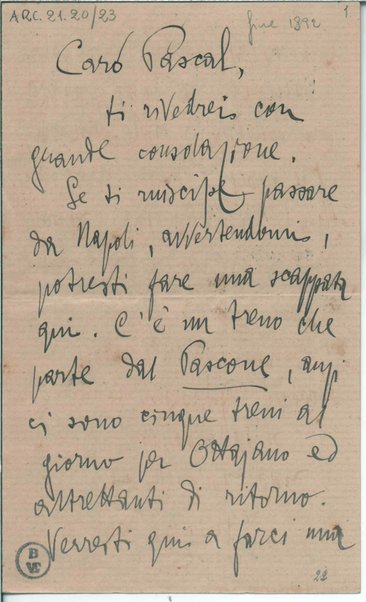 ARC. 21.20/23
fine 1892
1.
Caro Pascal,
ti rivedrei con
grande consolazione.
Se ti riuscisse passare
da Napoli, avvertendomi,
potresti fare una scappata
qui. C'è un treno che
parte dal Pascone, anzi
ci sono cinque treni al
giorno per Ottajano ed
altrettanti di ritorno.
Verresti qui a farci una
B
VE
22